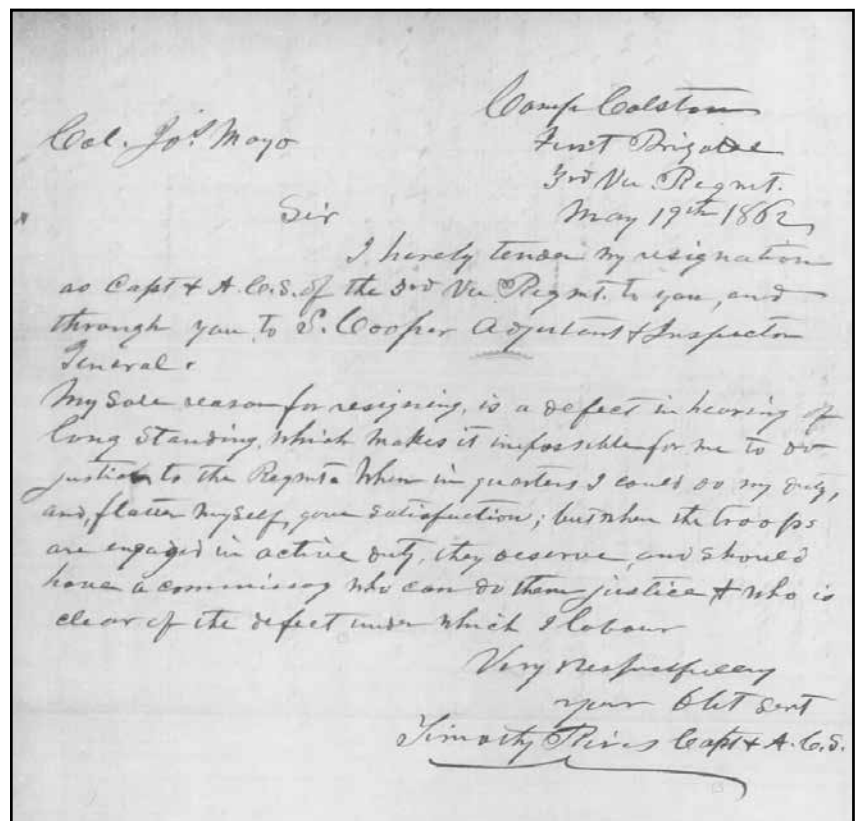 Camp Colston
Col. Jos. Mayo
First Brigade
3rd Va Regmt.
Sir
May 19th 1862
I herely tender my resignation
as Capt & A.C.S. of the 3rd Va Regmt. to you, and
through you to S. Cooper Adjutant & Inspector
General.
My sole reason for resigning, is a defect in hearing of
long standing, which makes it impossible for me to do
justice to the Regmt. When in quarters I could do my duty,
and, flatter myself, gave satisfaction; but when the troops
are engaged in active duty, they deserve, and should
have a commissary who can do them justice & who is
clear of the defect under which I labour
Very respectfully
your Obt Servt
Timothy Rives Capt & A.C.S.